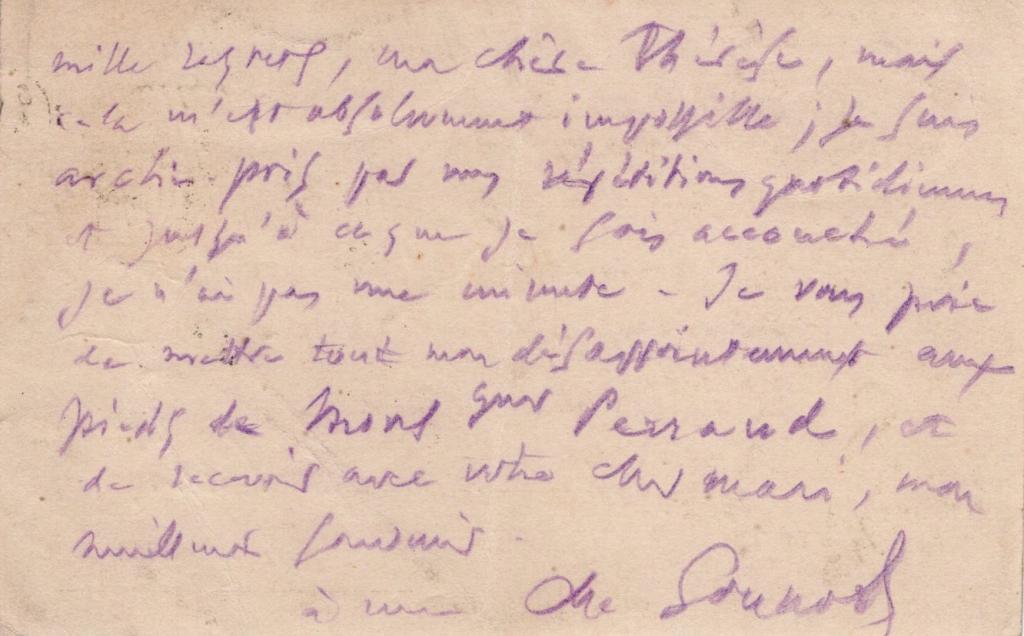 mille regrets, ma chère Thérèse, mais
cela m'est absolument impossible ; je suis
archi-pris par mes répétitions quotidiennes
et jusqu'à ce que je sois accouché,
je n'ai pas une minute - Je vous prie
de mettre tout mon désappointement aux
pieds de Mons gneur Perraud, et
de recevoir avec votre cher mari, mon
meilleur souvenir.
à vous Ch. Gounod